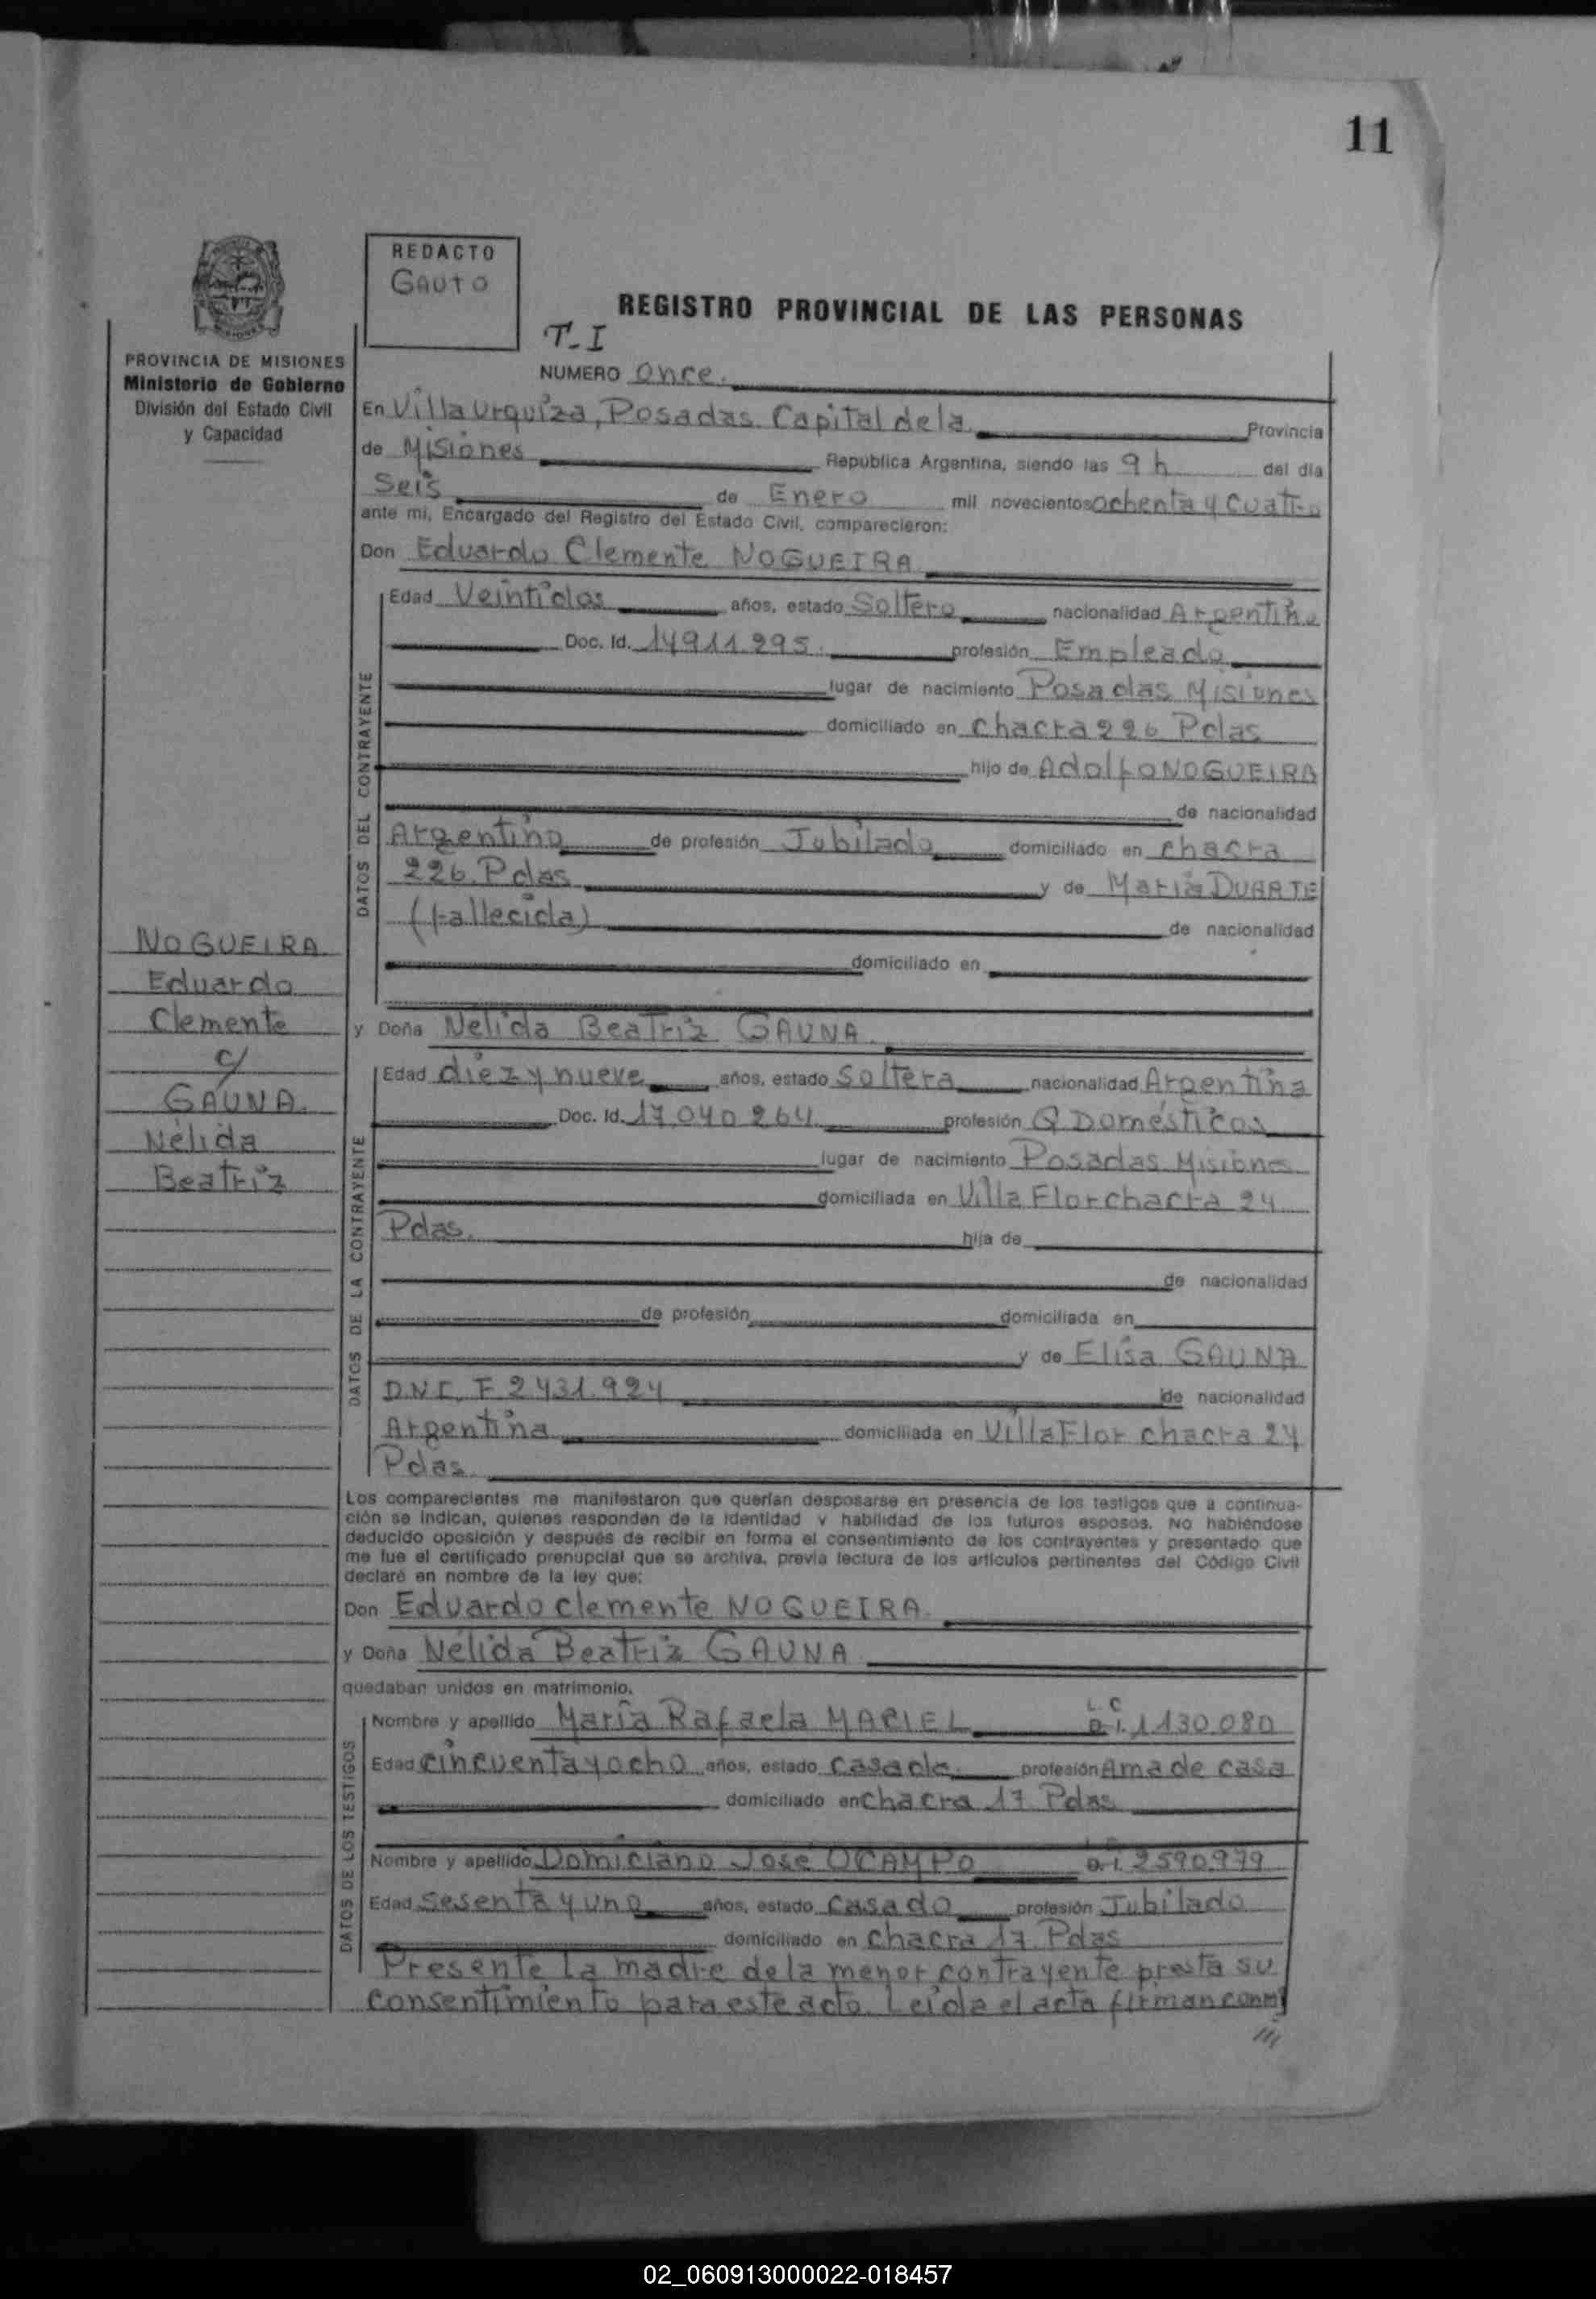 11
REDACTO
GAUTO
REGISTRO PROVINCIAL DE LAS PERSONAS
T-I
PROVINCIA DE MISIONES
Ministerio de Gobierno
División del Estado Civil
y Capacidad
NUMERO Once.
En Villa Urquiza, Posadas Capital de la Provincia
de Misiones República Argentina, siendo las 9 h del día
Seis de Enero mil novecientos ochenta y cuatro
ante mí, Encargado del Registro del Estado Civil, comparecieron:
Don Eduardo Clemente NOGUEIRA
DATOS DEL CONTRAYENTE
Edad Veintidos años, estado Soltero nacionalidad Argentino
Doc. Id. 14911.295. profesión Empleado
lugar de nacimiento Posadas Misiones
domiciliado en chacra 226 Pdas
hijo de Adolfo NOGUEIRA
de nacionalidad
Argentino de profesión Jubilado domiciliado en chacra
226. Pdas y de María DUARTE
(fallecida) de nacionalidad
domiciliado en
NOGUEIRA
Eduardo
Clemente
c/
GAUNA.
Nélida
Beatriz
y Doña Nélida Beatriz GAUNA.
DATOS DE LA CONTRAYENTE
Edad diez y nueve años, estado Soltera nacionalidad Argentina
Doc. Id. 17.040.264 profesión Q Domésticos
lugar de nacimiento Posadas Misiones
domiciliada en Villa Flor chacra 24
Pdas. hija de
de nacionalidad
de profesión domiciliada en
y de Elisa GAUNA
D.N.I. F 2431.924 de nacionalidad
Argentina domiciliada en Villa Flor chacra 24
Pdas.
Los comparecientes me manifestaron que querían desposarse en presencia de los testigos que a continua-
ción se indican, quienes responden de la identidad y habilidad de los futuros esposos. No habiéndose
deducido oposición y después de recibir en forma el consentimiento de los contrayentes y presentado que
me fue el certificado prenupcial que se archiva, previa lectura de los artículos pertinentes del Código Civil
declaré en nombre de la ley que:
Don Eduardo Clemente NOGUEIRA.
y Doña Nélida Beatriz GAUNA
quedaban unidos en matrimonio.
DATOS DE LOS TESTIGOS
L.C
Nombre y apellido María Rafaela MARIEL D.I. 1130.080
Edad cincuenta y ocho años, estado casada profesión Ama de casa
domiciliado en chacra 17 Pdas
Nombre y apellido Domiciano José OCAMPO D.I. 2590.979
Edad sesenta y uno años, estado casado profesión Jubilado
domiciliado en chacra 17. Pdas
Presente la madre de la menor contrayente presta su
consentimiento para este acto. Leída el acta firman conmi
///
02_060913000022-018457